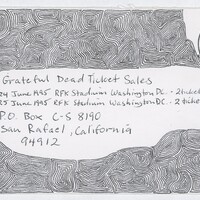 Grateful Dead Ticket Sales
24 June 1995 RFK Stadium Washington DC. - 2 ticket
25 June 1995 RFK Stadium Washington DC. - 2 ticket
P.O. Box C-S 8190
San Rafael, California
94912